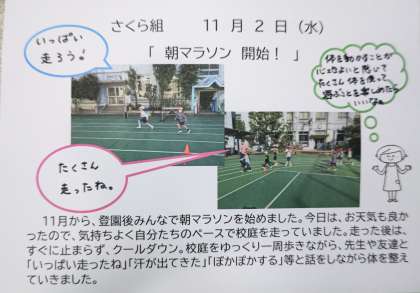 さくら組　11月2日（水）
「朝マラソン 開始！」
いっぱい
走ろう！
体を動かすことが
心地よいと思いて
たくさん体を使って
遊ぶことを楽しめたら
いいな。
たくさん
走ったね。
11月から、登園後みんなで朝マラソンを始めました。今日は、お天気も良か
ったので、気持ちよく自分たちのペースで校庭を走っていました。走った後は、
すぐに止まらず、クールダウン。校庭をゆっくり一周歩きながら、先生や友達と
「いっぱい走ったね」「汗が出てきた」「ぽかぽかする」等と話をしながら体を整え
ていきました。